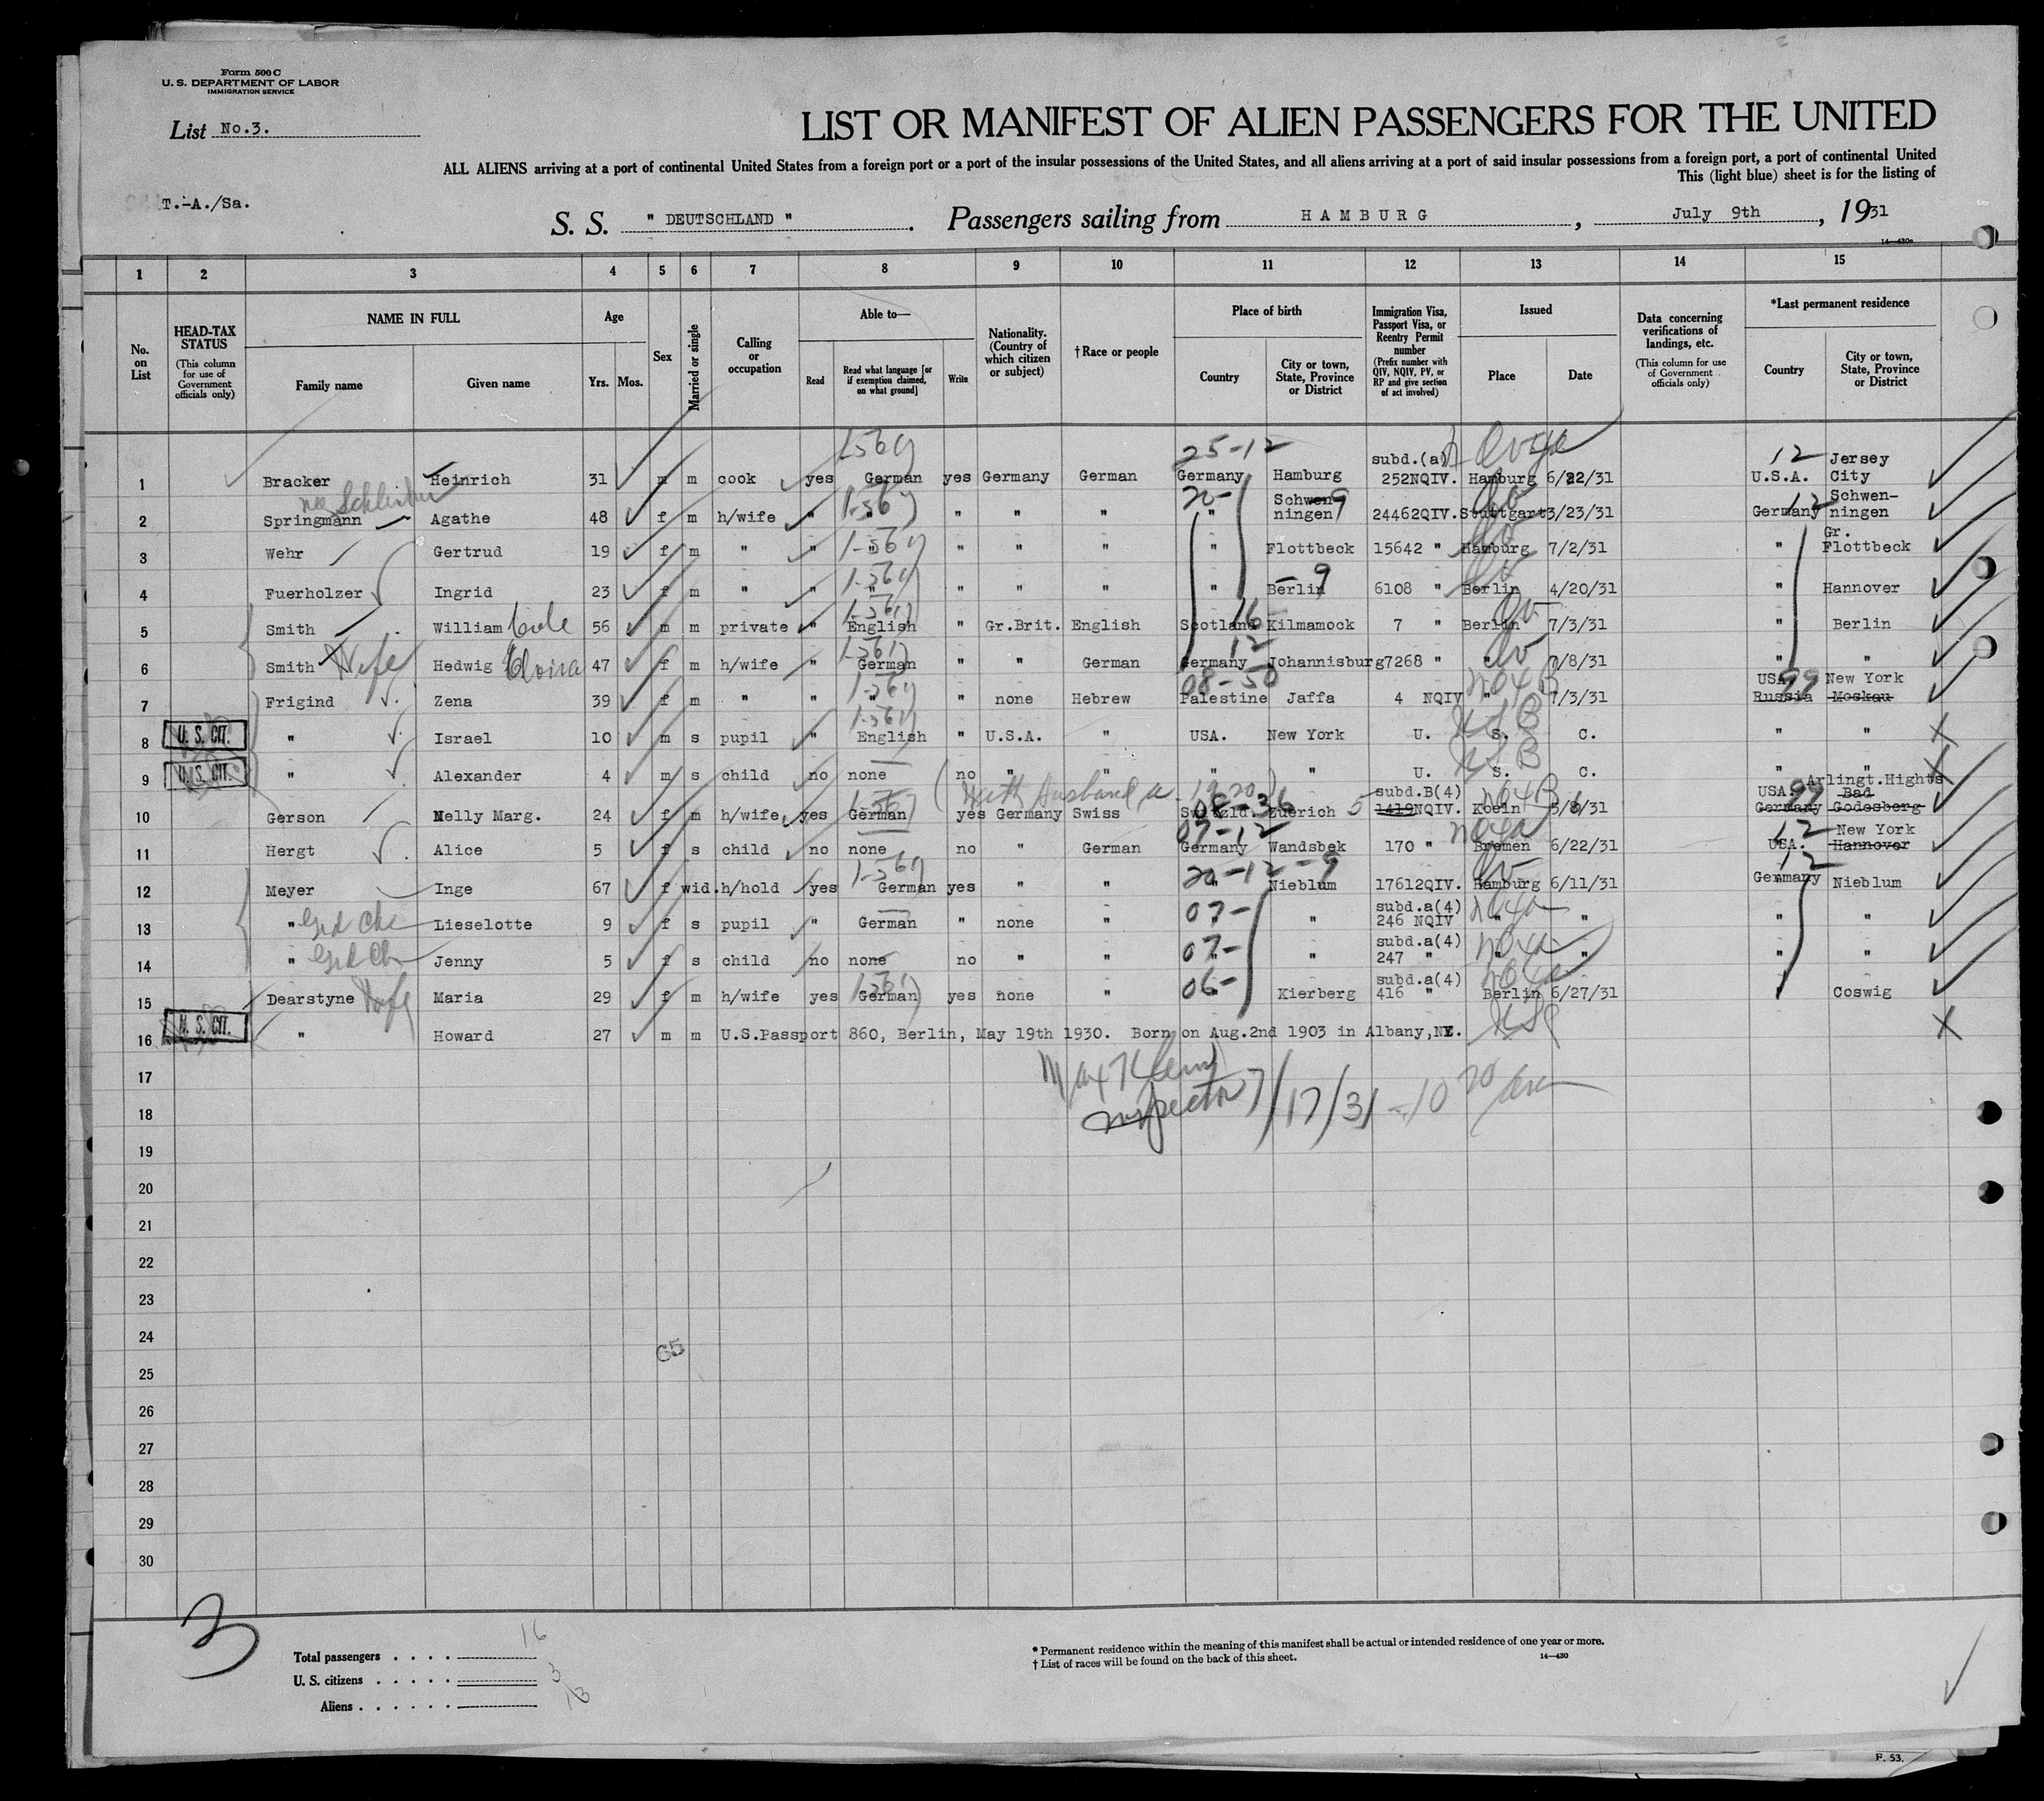 Form 500 C
U. S. DEPARTMENT OF LABOR
IMMIGRATION SERVICE
List No.3.
LIST OR MANIFEST OF ALIEN PASSENGERS FOR THE UNITED
ALL ALIENS arriving at a port of continental United States from a foreign port or a port of the insular possessions of the United States, and all aliens arriving at a port of said insular possessions from a foreign port, a port of continental United
This (light blue) sheet is for the listing of
T.-A./Sa.
S. S. " DEUTSCHLAND " . Passengers sailing from HAMBURG , July 9th , 1931
14—430a
1 2 3 4 5 6 7 8 9 10 11 12 13 14 15
No. on List
HEAD-TAX STATUS (This column for use of Government officials only)
NAME IN FULL Family name Given name
Age Yrs. Mos.
Sex
Married or single
Calling or occupation
Able to— Read Read what language [or if exemption claimed, on what ground] Write
Nationality. (Country of which citizen or subject)
†Race or people
Place of birth Country City or town, State, Province or District
Immigration Visa, Passport Visa, or Reentry Permit number (Prefix number with QIV, NQIV, PV, or RP and give section of act involved)
Issued Place Date
Data concerning verifications of landings, etc. (This column for use of Government officials only)
*Last permanent residence Country City or town, State, Province or District
25-12 subd.(a) 12 Jersey
1 Bracker Heinrich 31 m m cook yes German yes Germany German Germany Hamburg 252NQIV. Hamburg 6/22/31 U.S.A. City
20- Schwen- 12 Schwen-
2 Springmann Agathe 48 f m h/wife " " " " " " ningen 24462QIV. Stuttgart 3/23/31 Germany ningen
Gr.
3 Wehr Gertrud 19 f m " " " " " " " Flottbeck 15642 " Hamburg 7/2/31 " Flottbeck
4 Fuerholzer Ingrid 23 f m " " " " " " " Berlin 6108 " Berlin 4/20/31 " Hannover
5 Smith William 56 m m private " English " Gr.Brit. English Scotland Kilmamock 7 " Berlin 7/3/31 " Berlin
6 Smith Wife Hedwig 47 f m h/wife " German " " German Germany Johannisburg 7268 " " 7/8/31 " "
08-50 USA 99 New York
7 Frigind Zena 39 f m " " " " none Hebrew Palestine Jaffa 4 NQIV " 7/3/31 Russia Moskau
8 U. S. CIT. " Israel 10 m s pupil " English " U.S.A. " USA. New York U. S. C. " "
9 U. S. CIT. " Alexander 4 m s child no none no " " " " U. S. C. " "
subd.B(4) USA. 99 Arlingt.Hights Bad
10 Gerson Nelly Marg. 24 f m h/wife yes German yes Germany Swiss Switzld. Zuerich 1419NQIV. Koeln 5/6/31 Germany Godesberg
07-12 12 New York
11 Hergt Alice 5 f s child no none no " German Germany Wandsbek 170 " Bremen 6/22/31 USA. Hannover
20-12-9 12
12 Meyer Inge 67 f wid. h/hold yes German yes " " " Nieblum 17612QIV. Hamburg 6/11/31 Germany Nieblum
07- subd.a(4)
13 " Lieselotte 9 f s pupil " German " none " " " 246 NQIV " " " "
07- subd.a(4)
14 " Jenny 5 f s child no none no " " " " 247 " " " " "
06- subd.a(4)
15 Dearstyne Wife Maria 29 f m h/wife yes German yes none " " Kierberg 416 " Berlin 6/27/31 " Coswig
16 U. S. CIT. " Howard 27 m m U.S.Passport 860, Berlin, May 19th 1930. Born on Aug.2nd 1903 in Albany,NY.
17
Inspector 7/17/31 - 10 20 am
18
19
20
21
22
23
24
65
25
26
27
28
29
30
3
Total passengers 16
U. S. citizens 3
Aliens 13
* Permanent residence within the meaning of this manifest shall be actual or intended residence of one year or more.
† List of races will be found on the back of this sheet.
14—430
P. 53.